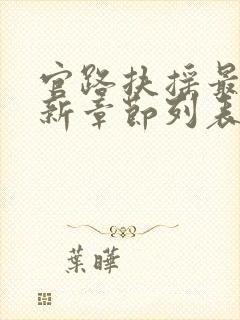 官路扶摇最
新章節列表
葉曄